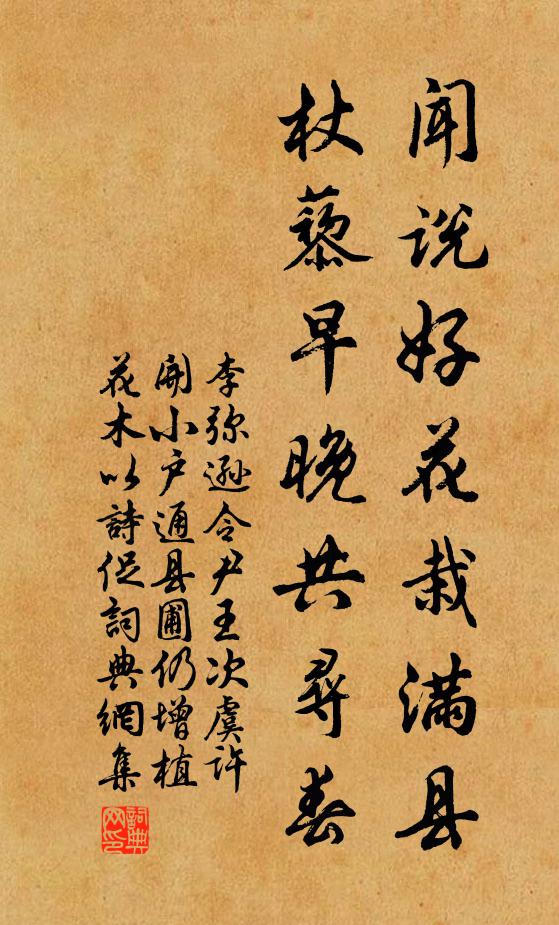 闻说好花栽满县
杖藜早晚共寻春
李弥逊令尹王次虞许
開小户通县圃仍增植
花木以詩促詞典網集
詞典网印